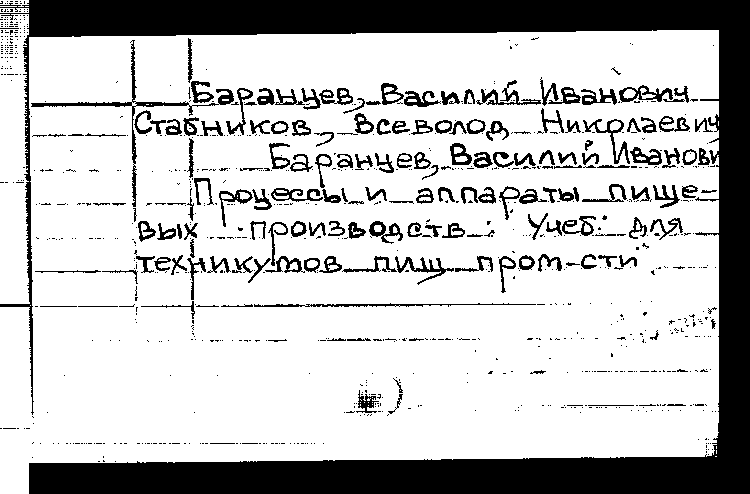 Баранцев, Василий Иванович
Стабников, Всеволод Николаевич
Баранцев, Василий Иванови
Процессы и аппараты пище-
вых производств: Учеб. для
техникумов пищ пром-сти